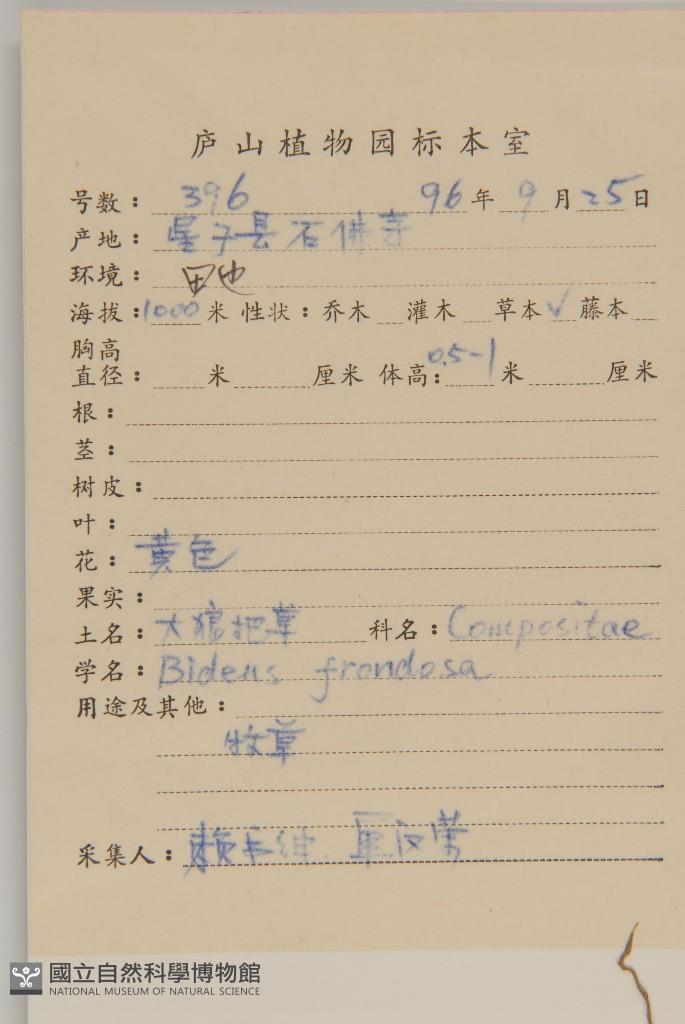 庐山植物园标本室
号数：396 96年9月25日
产地：星子县石佛寺
环境：田地
海拔：1000米 性状：乔木 灌木 草本√ 藤本
胸高
直径： 米 厘米 体高：0.5-1米 厘米
根：
茎：
树皮：
叶：
花：黄色
果实：
土名：大狼把草 科名：Compositae
学名：Bidens frondosa
用途及其他：
牧草
采集人：赖
國立自然科學博物館
NATIONAL MUSEUM OF NATURAL SCIENCE